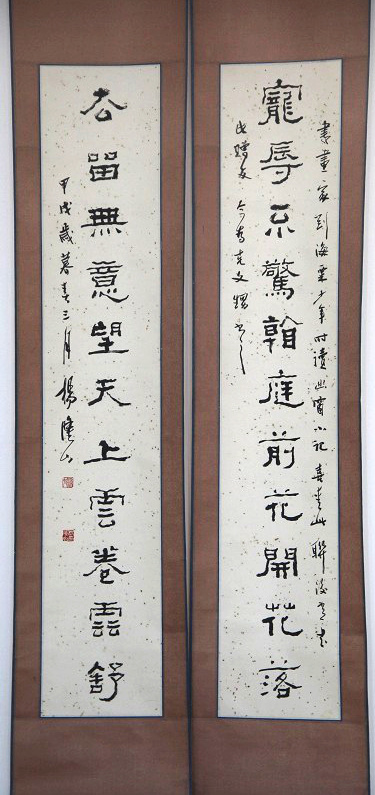 書畫家劉海粟少年時讀幽窗小記喜愛此聯後常書
寵辱不驚看庭前花開花落
此贈友今為克文甥書之
去留無意望天上雲卷雲舒
甲戌歲暮春三月楊